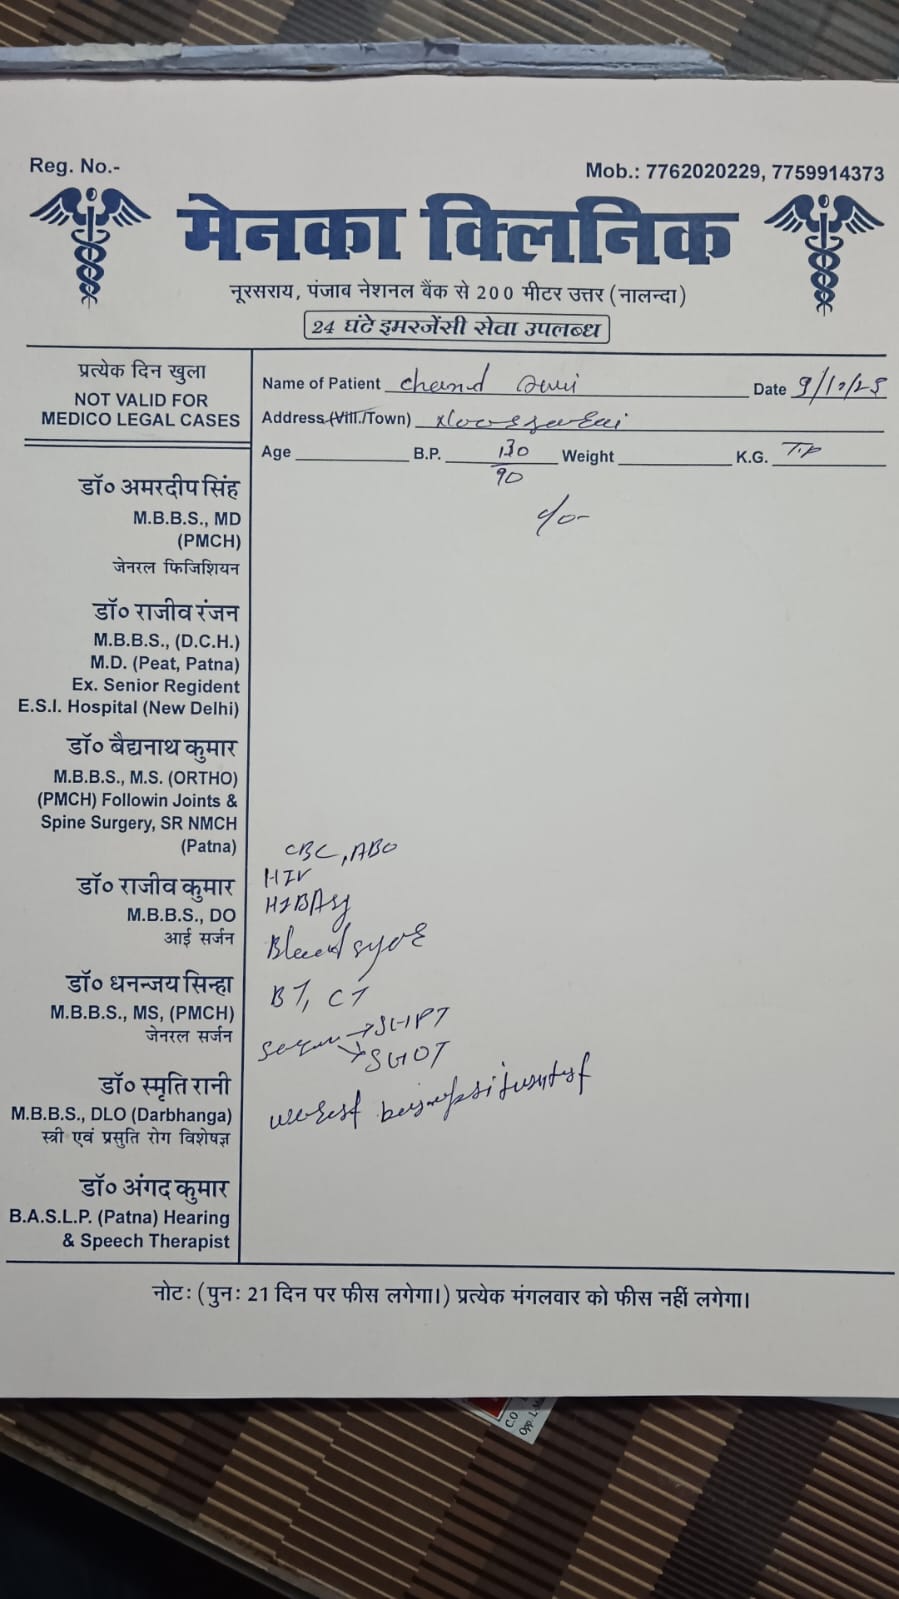 Reg. No.-
Mob.: 7762020229, 7759914373
मेनका क्लिनिक
नूरसराय, पंजाब नेशनल बैंक से 200 मीटर उत्तर (नालन्दा)
24 घंटे इमरजेंसी सेवा उपलब्ध
प्रत्येक दिन खुला
NOT VALID FOR
MEDICO LEGAL CASES
Name of Patient Chand Date
Address (Vill./Town)
Age B.P. 130/90 Weight K.G.
डॉ० अमरदीप सिंह
M.B.B.S., MD
(PMCH)
जेनरल फिजिशियन
डॉ० राजीव रंजन
M.B.B.S., (D.C.H.)
M.D. (Peat, Patna)
Ex. Senior Regident
E.S.I. Hospital (New Delhi)
डॉ० बैद्यनाथ कुमार
M.B.B.S., M.S. (ORTHO)
(PMCH) Followin Joints &
Spine Surgery, SR NMCH
(Patna)
डॉ० राजीव कुमार
M.B.B.S., DO
आई सर्जन
डॉ० धनन्जय सिन्हा
M.B.B.S., MS, (PMCH)
जेनरल सर्जन
डॉ० स्मृति रानी
M.B.B.S., DLO (Darbhanga)
स्त्री एवं प्रसुति रोग विशेषज्ञ
डॉ० अंगद कुमार
B.A.S.L.P. (Patna) Hearing
& Speech Therapist
c/o-
CBC, ABO
HIV
Blood
BT, CT
SGPT
SGOT
नोटः (पुनः 21 दिन पर फीस लगेगा।) प्रत्येक मंगलवार को फीस नहीं लगेगा।
C.O